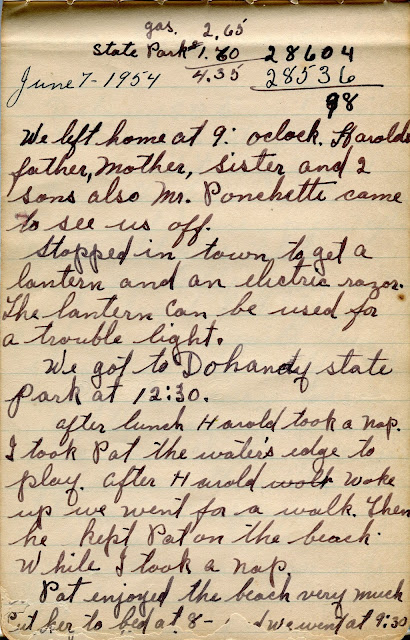 gas. 2.65
State Park $1.70 28604
June 7-1954 4.35 28536
98
We left home at 9: oclock. Harolds
father, Mother, sister and 2
sons also Mr. Ponchette came
to see us off.
Stopped in town to get a
lantern and an electric razor.
The lantern can be used for
a trouble light.
We got to Dohandy state
Park at 12:30.
after lunch Harold took a nap.
I took Pat the water's edge to
play. after Harold wolt woke
up we went for a walk. Then
he kept Pat on the beach.
While I took a nap.
Pat enjoyed the beach very much
Put her to bed at 8- d we went at 9:30